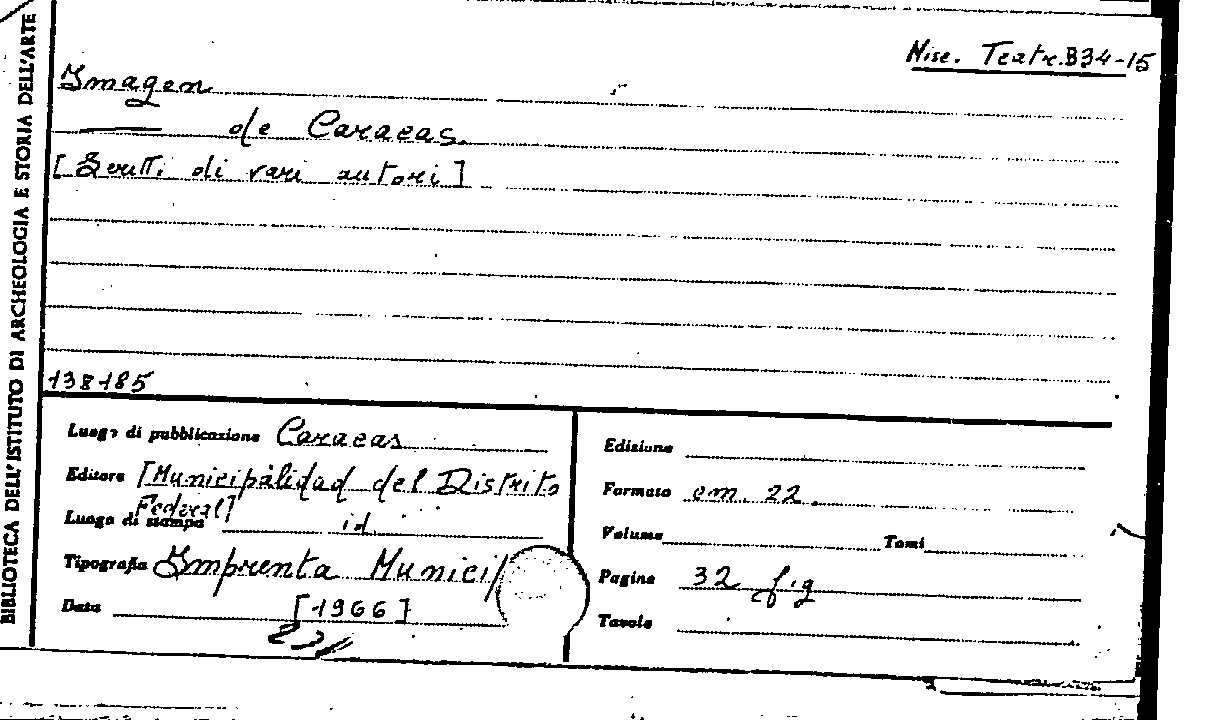 BIBLIOTECA DELL'ISTITUTO DI ARCHEOLOGIA E STORIA DELL'ARTE
Misc. Teatr. B34-15
Imagen
de Caracas.
[Scritti di vari autori]
138185
Luogo di pubblicazione Caracas
Editore [Municipalidad del Distrito
Federal]
Luogo di stampa id.
Tipografia Imprenta Munici
Data [1966]
Edizione
Formato cm. 22.
Volume Tomi
Pagine 32 fig
Tavole